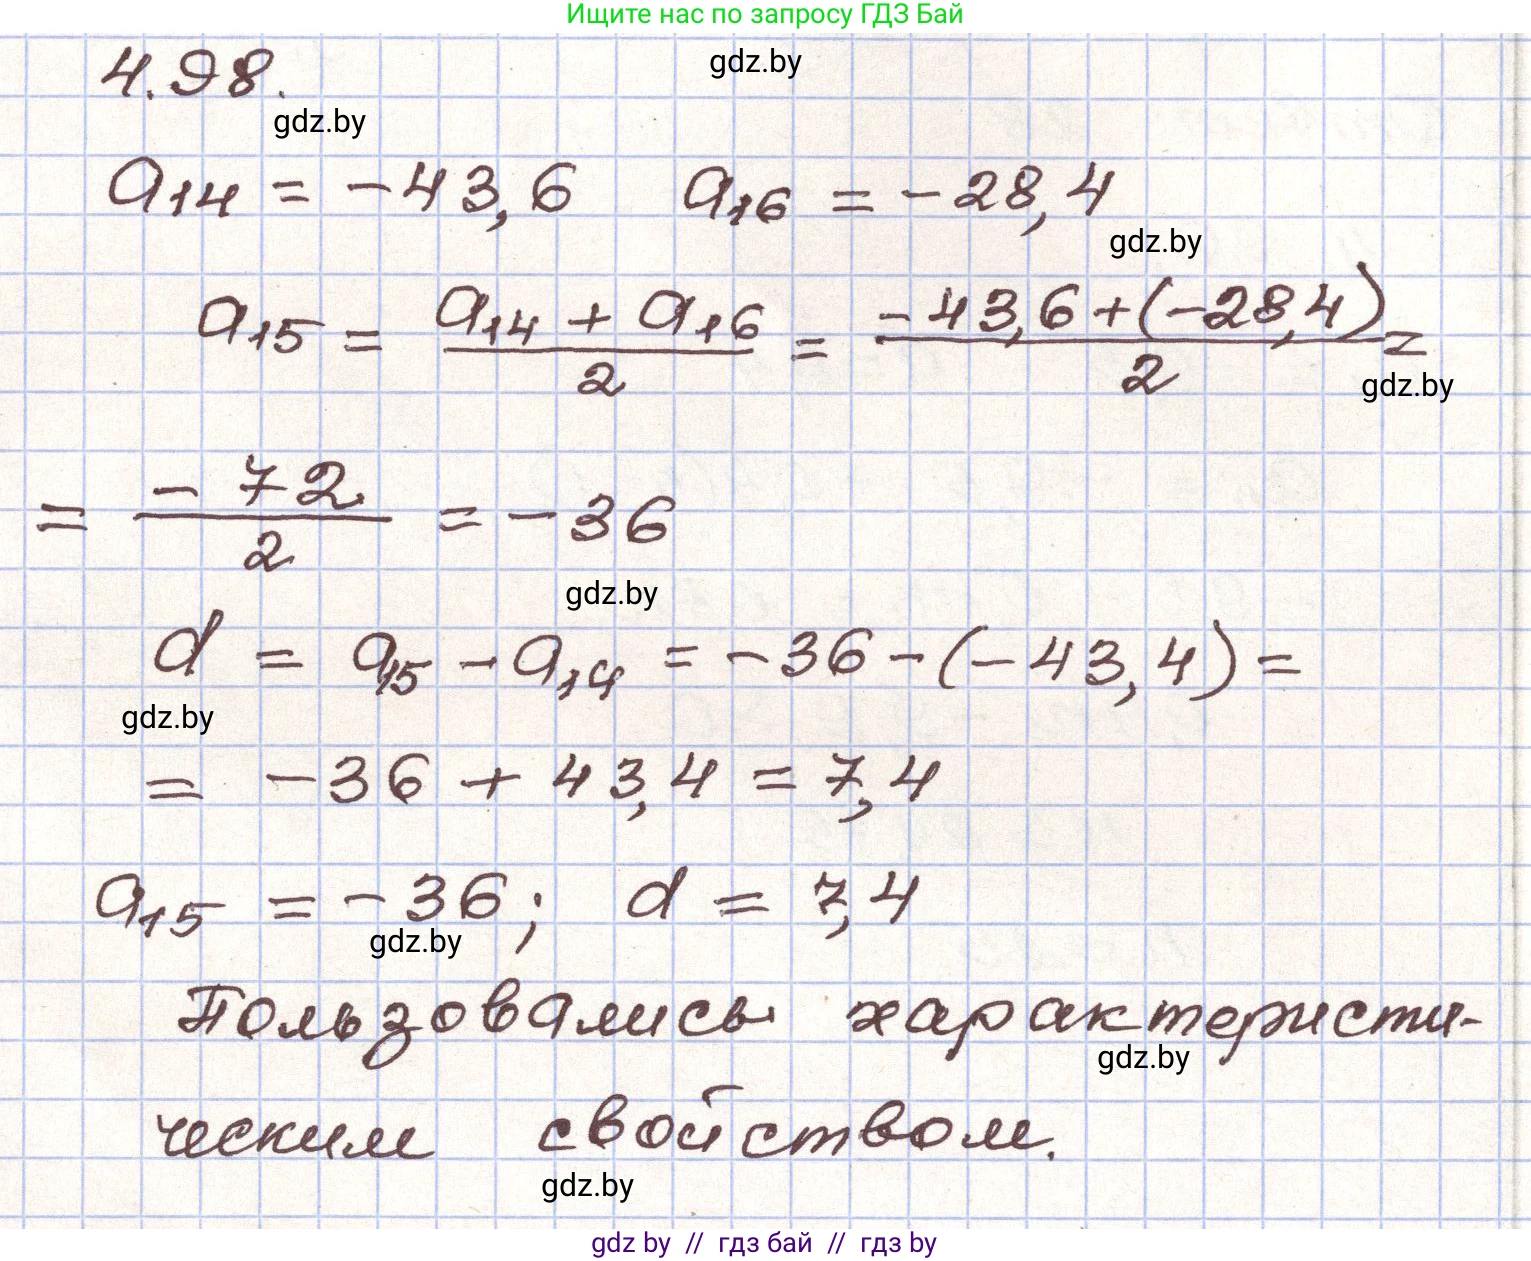 Ищите нас по запросу ГДЗ Бай
gdz.by
4.98.
gdz.by
a₁₄ = -43,6 a₁₆ = -28,4
gdz.by
a₁₅ = (a₁₄ + a₁₆)/2 = (-43,6+(-28,4))/2 =
gdz.by
= -72/2 = -36
gdz.by
d = a₁₅ - a₁₄ = -36-(-43,4) =
gdz.by
= -36 + 43,4 = 7,4
a₁₅ = -36; d = 7,4
gdz.by
Пользовались характеристи-
gdz.by
ческим свойством.
gdz.by
gdz by // гдз бай // гдз by